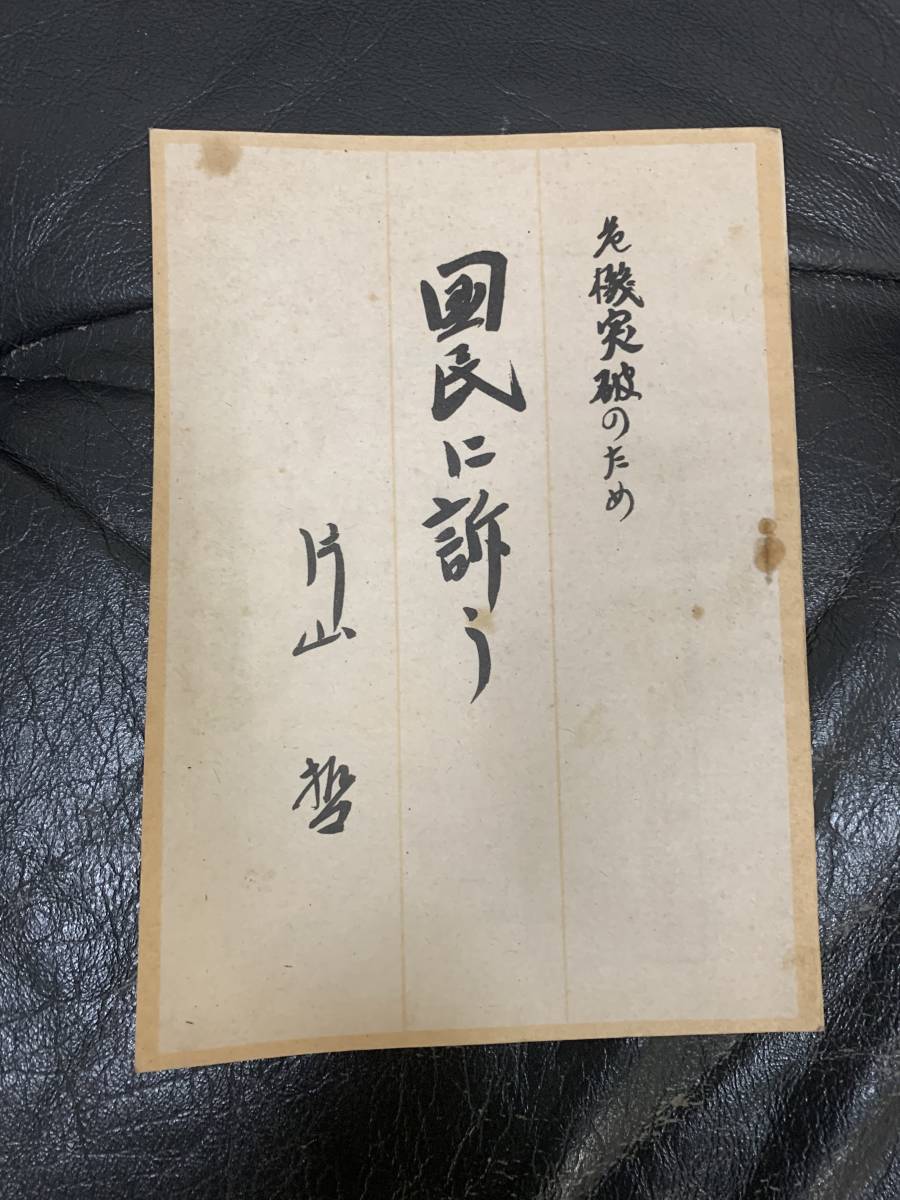 危機突破のため
国民に訴う
片山 哲